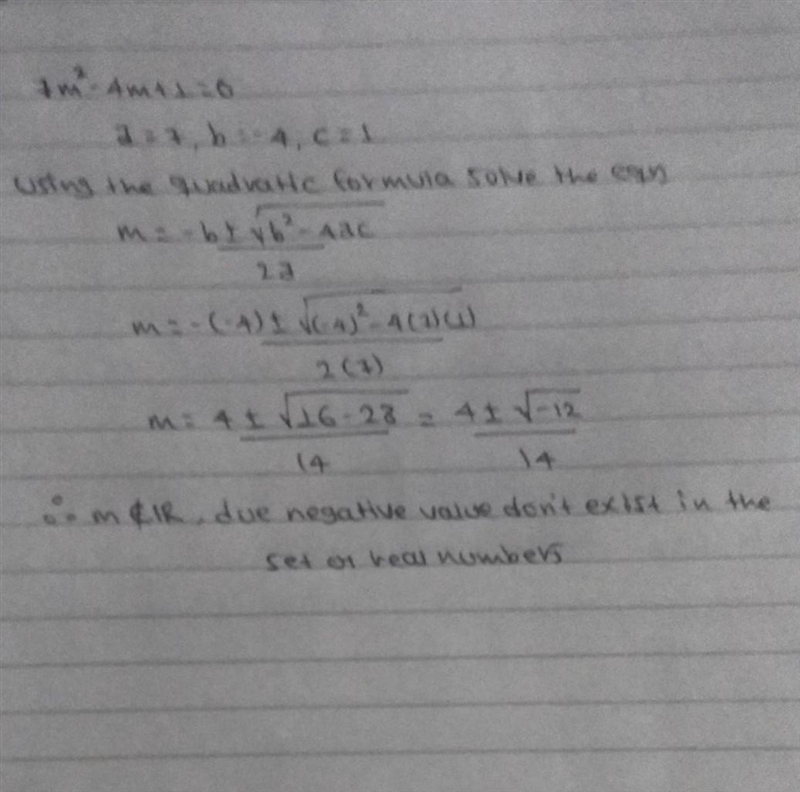 7m² - 4m + 1 = 0
a = 7, b = -4, c = 1
Using the quadratic formula solve the eqn
m = -b ± √b² - 4ac
2a
m = -(-4) ± √(-4)² - 4(7)(1)
2(7)
m = 4 ± √16 - 28 = 4 ± √-12
14 14
∴ m ∉ IR, due negative value don't exist in the
set of real numbers